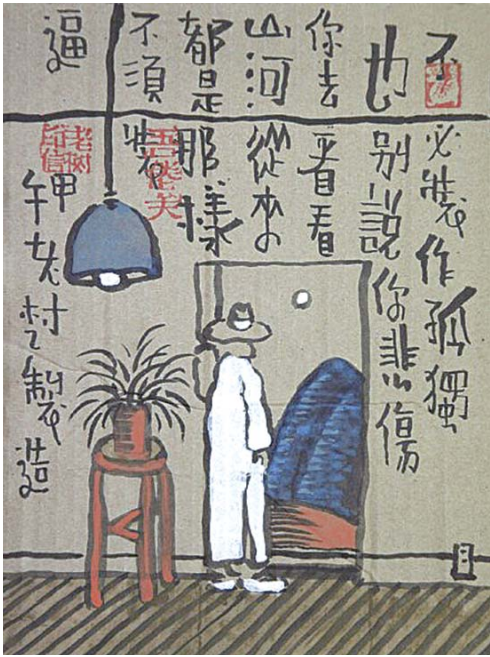 不必裝作孤獨
也别説你悲傷
你去看看
山河從來
都是那樣
不須裝
逼
甲午老树製造
老树印信